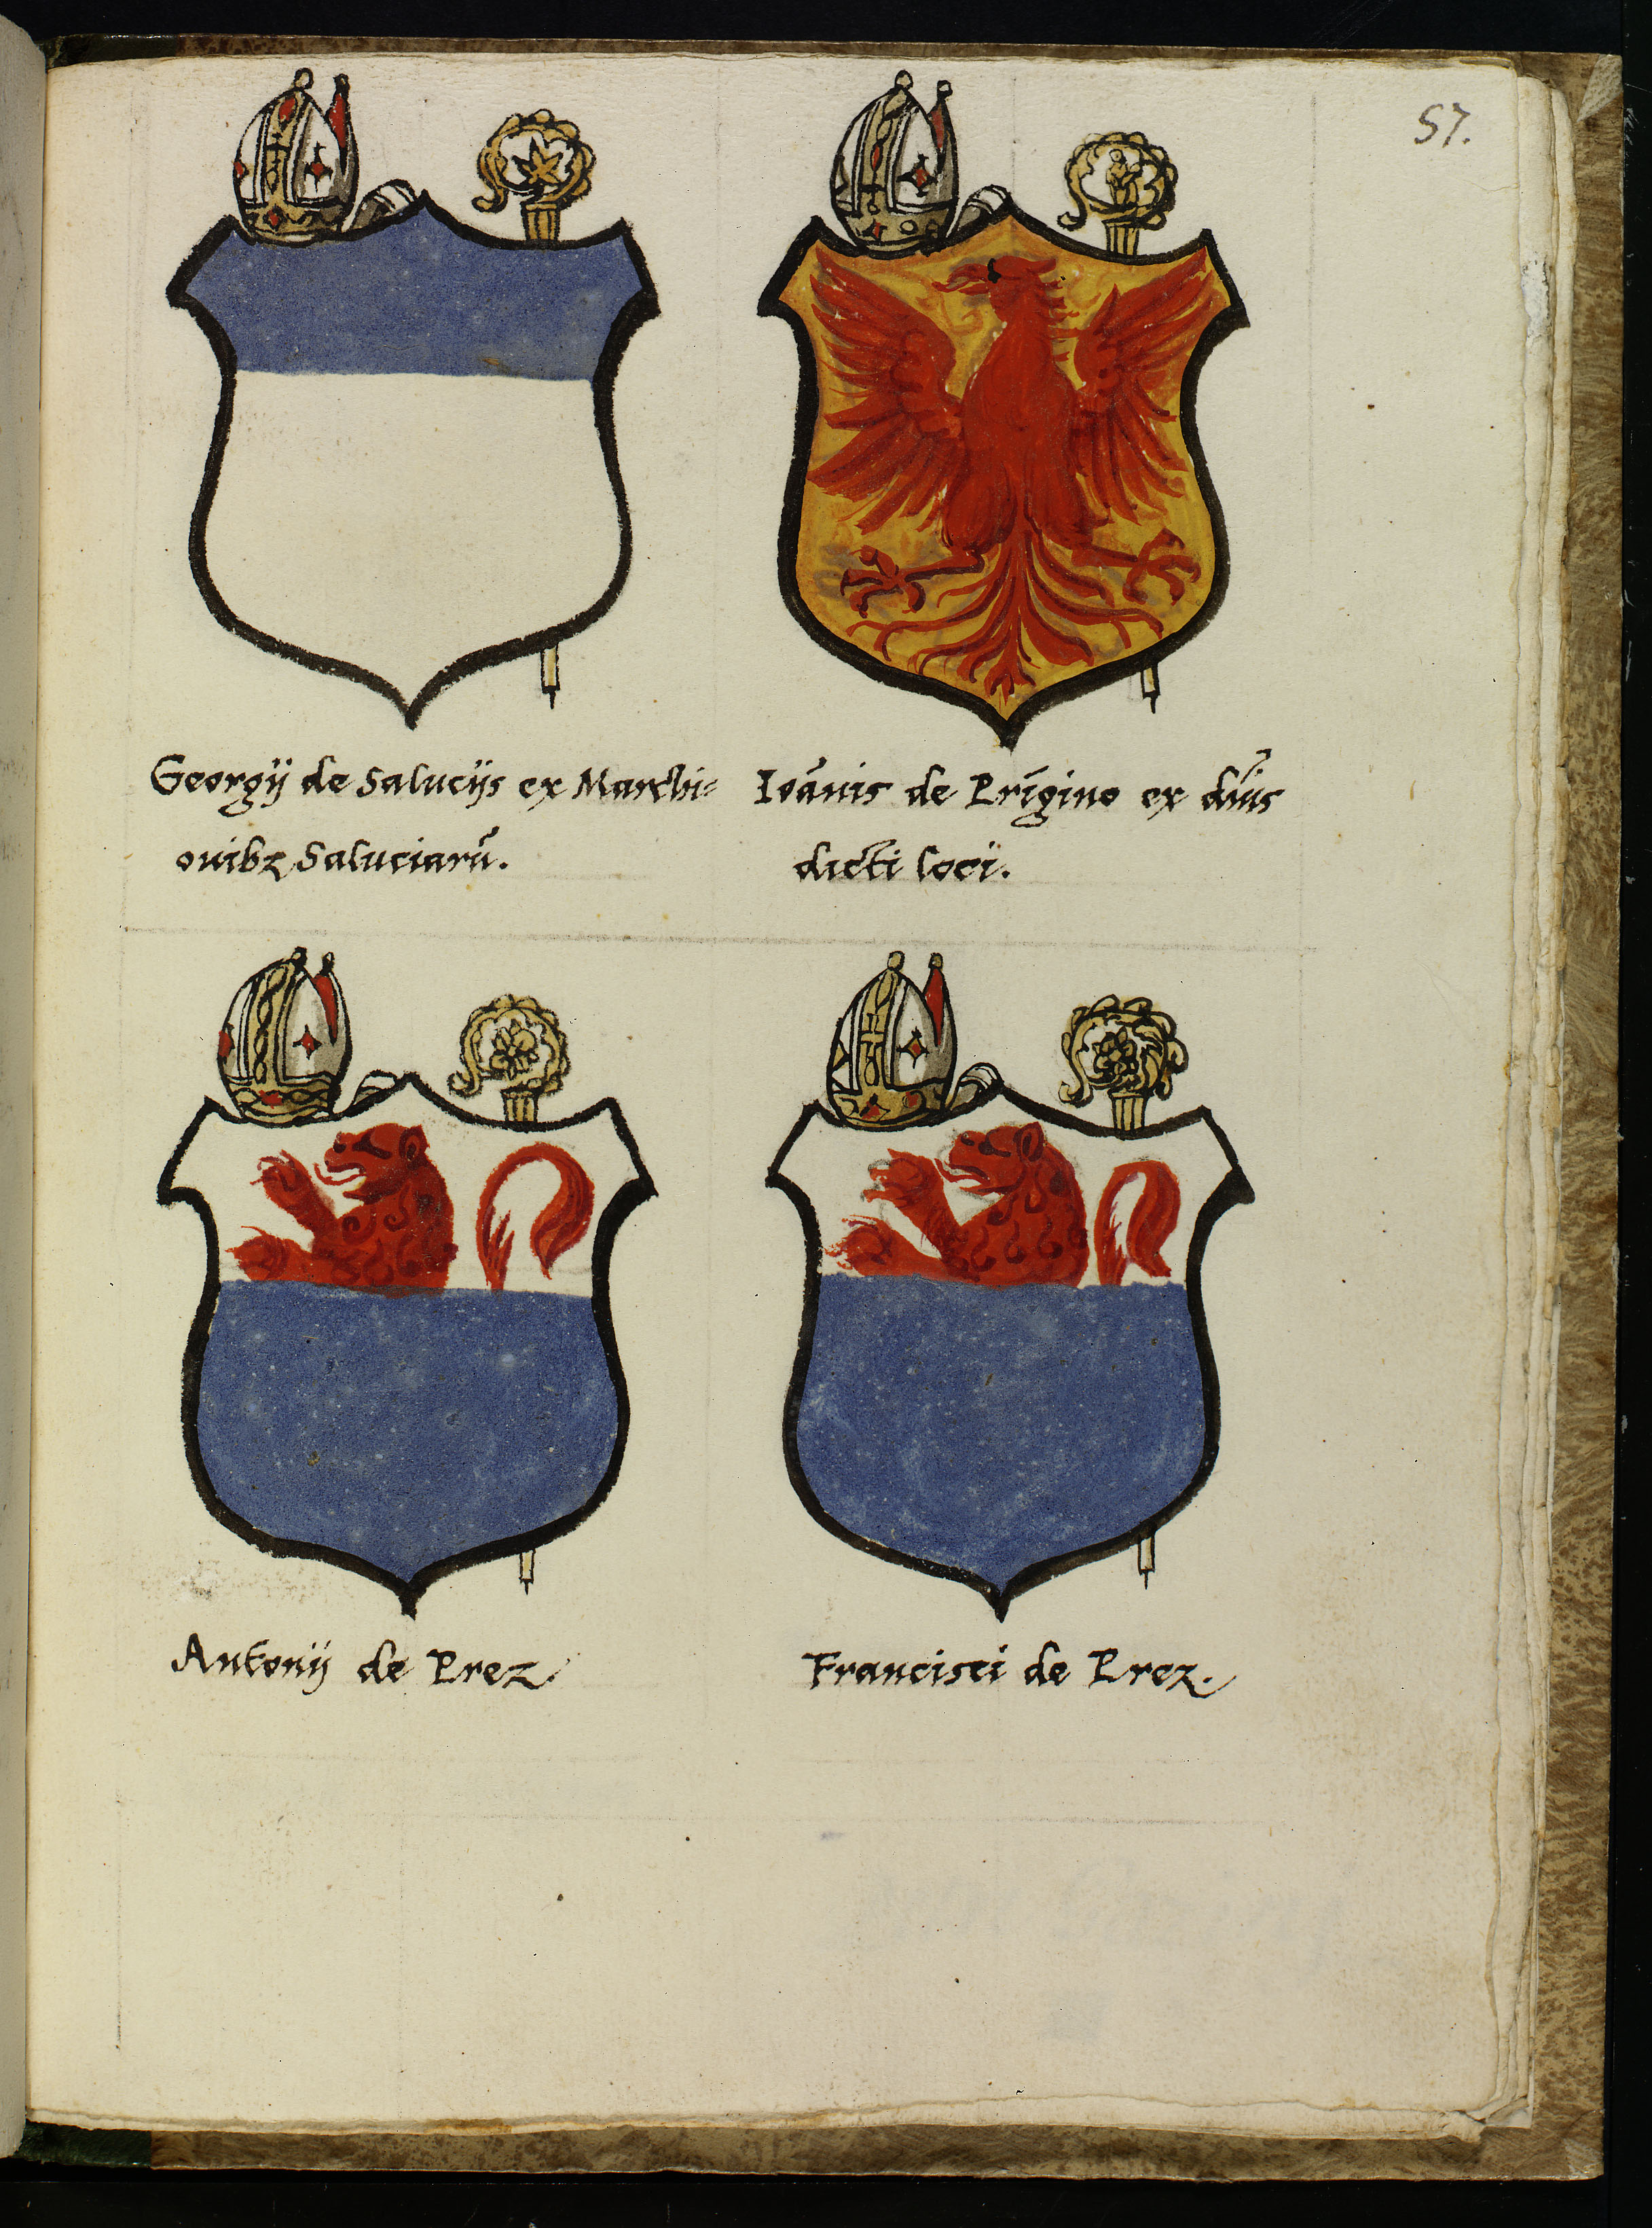 57.
Georgij de Salucijs ex Marchi=
onibꝫ Saluciarū.
Ioānis de Prīgino ex dn̄is
dicti loci.
Antonij de Prez
Francisci de Prez.